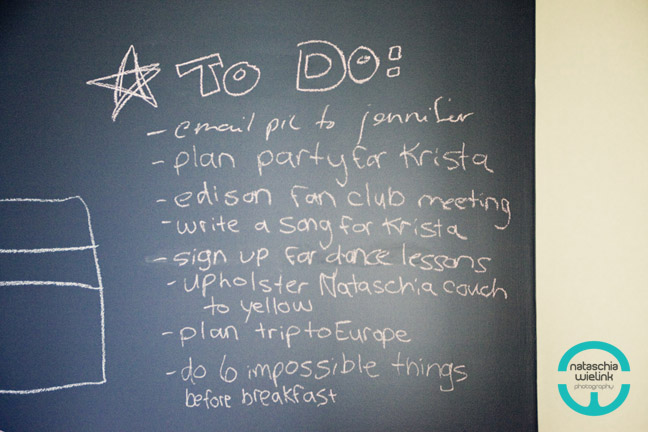 TO DO:
- email pic to jennifer
- plan party for Krista
- edison fan club meeting
- write a song for Krista
- sign up for dance lessons
- upholster Nataschia couch
to yellow
- plan trip to Europe
- do 6 impossible things
before breakfast
nataschia
wielink
photography